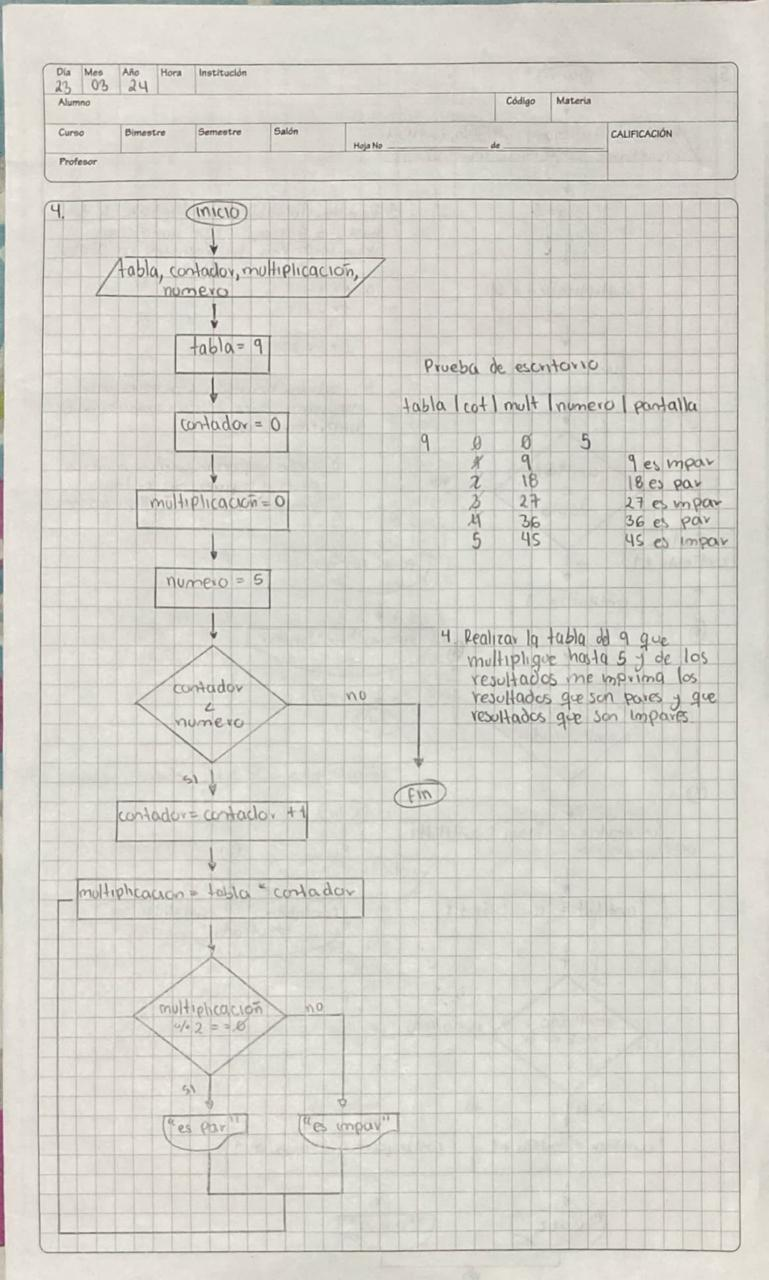 Día Mes Año Hora Institución
23 03 24
Alumno Código Materia
Curso Bimestre Semestre Salón Hoja No de CALIFICACIÓN
Profesor
4.
inicio
tabla, contador, multiplicación,
numero
tabla = 9
contador = 0
multiplicación = 0
numero = 5
contador
<
numero
no
fin
si
contador = contador + 1
multiplicacion = tabla * contador
multiplicación
% 2 = = 0
no
si
"es par"
"es impar"
Prueba de escritorio
tabla | cot | mult | numero | pantalla
9 0 0 5
1 9 9 es mpar
2 18 18 es par
3 27 27 es impar
4 36 36 es par
5 45 45 es impar
4. Realizar la tabla del 9 que
multiplique hasta 5 y de los
resultados me imprima los
resultados que son pares y que
resultados que son impares